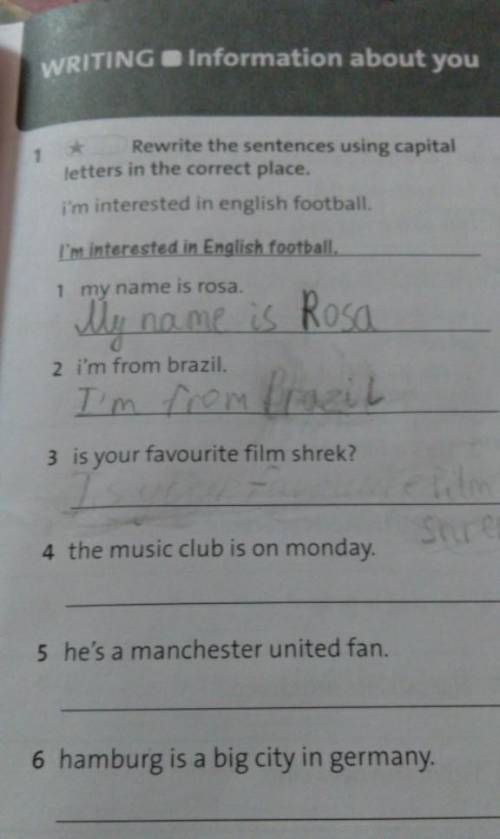 WRITING Information about you
1 ★ Rewrite the sentences using capital
letters in the correct place.
i'm interested in english football.
I'm interested in English football.
1 my name is rosa.
My name is Rosa
2 i'm from brazil.
I'm from Brazil
3 is your favourite film shrek?
Is your Favourite film
4 the music club is on monday.
5 he's a manchester united fan.
6 hamburg is a big city in germany.